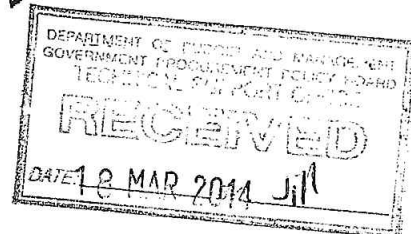 DEPARTMENT OF BUDGET AND MANAGEMENT
GOVERNMENT PROCUREMENT POLICY BOARD
TECHNICAL SUPPORT OFFICE
RECEIVED
DATE: 18 MAR 2014